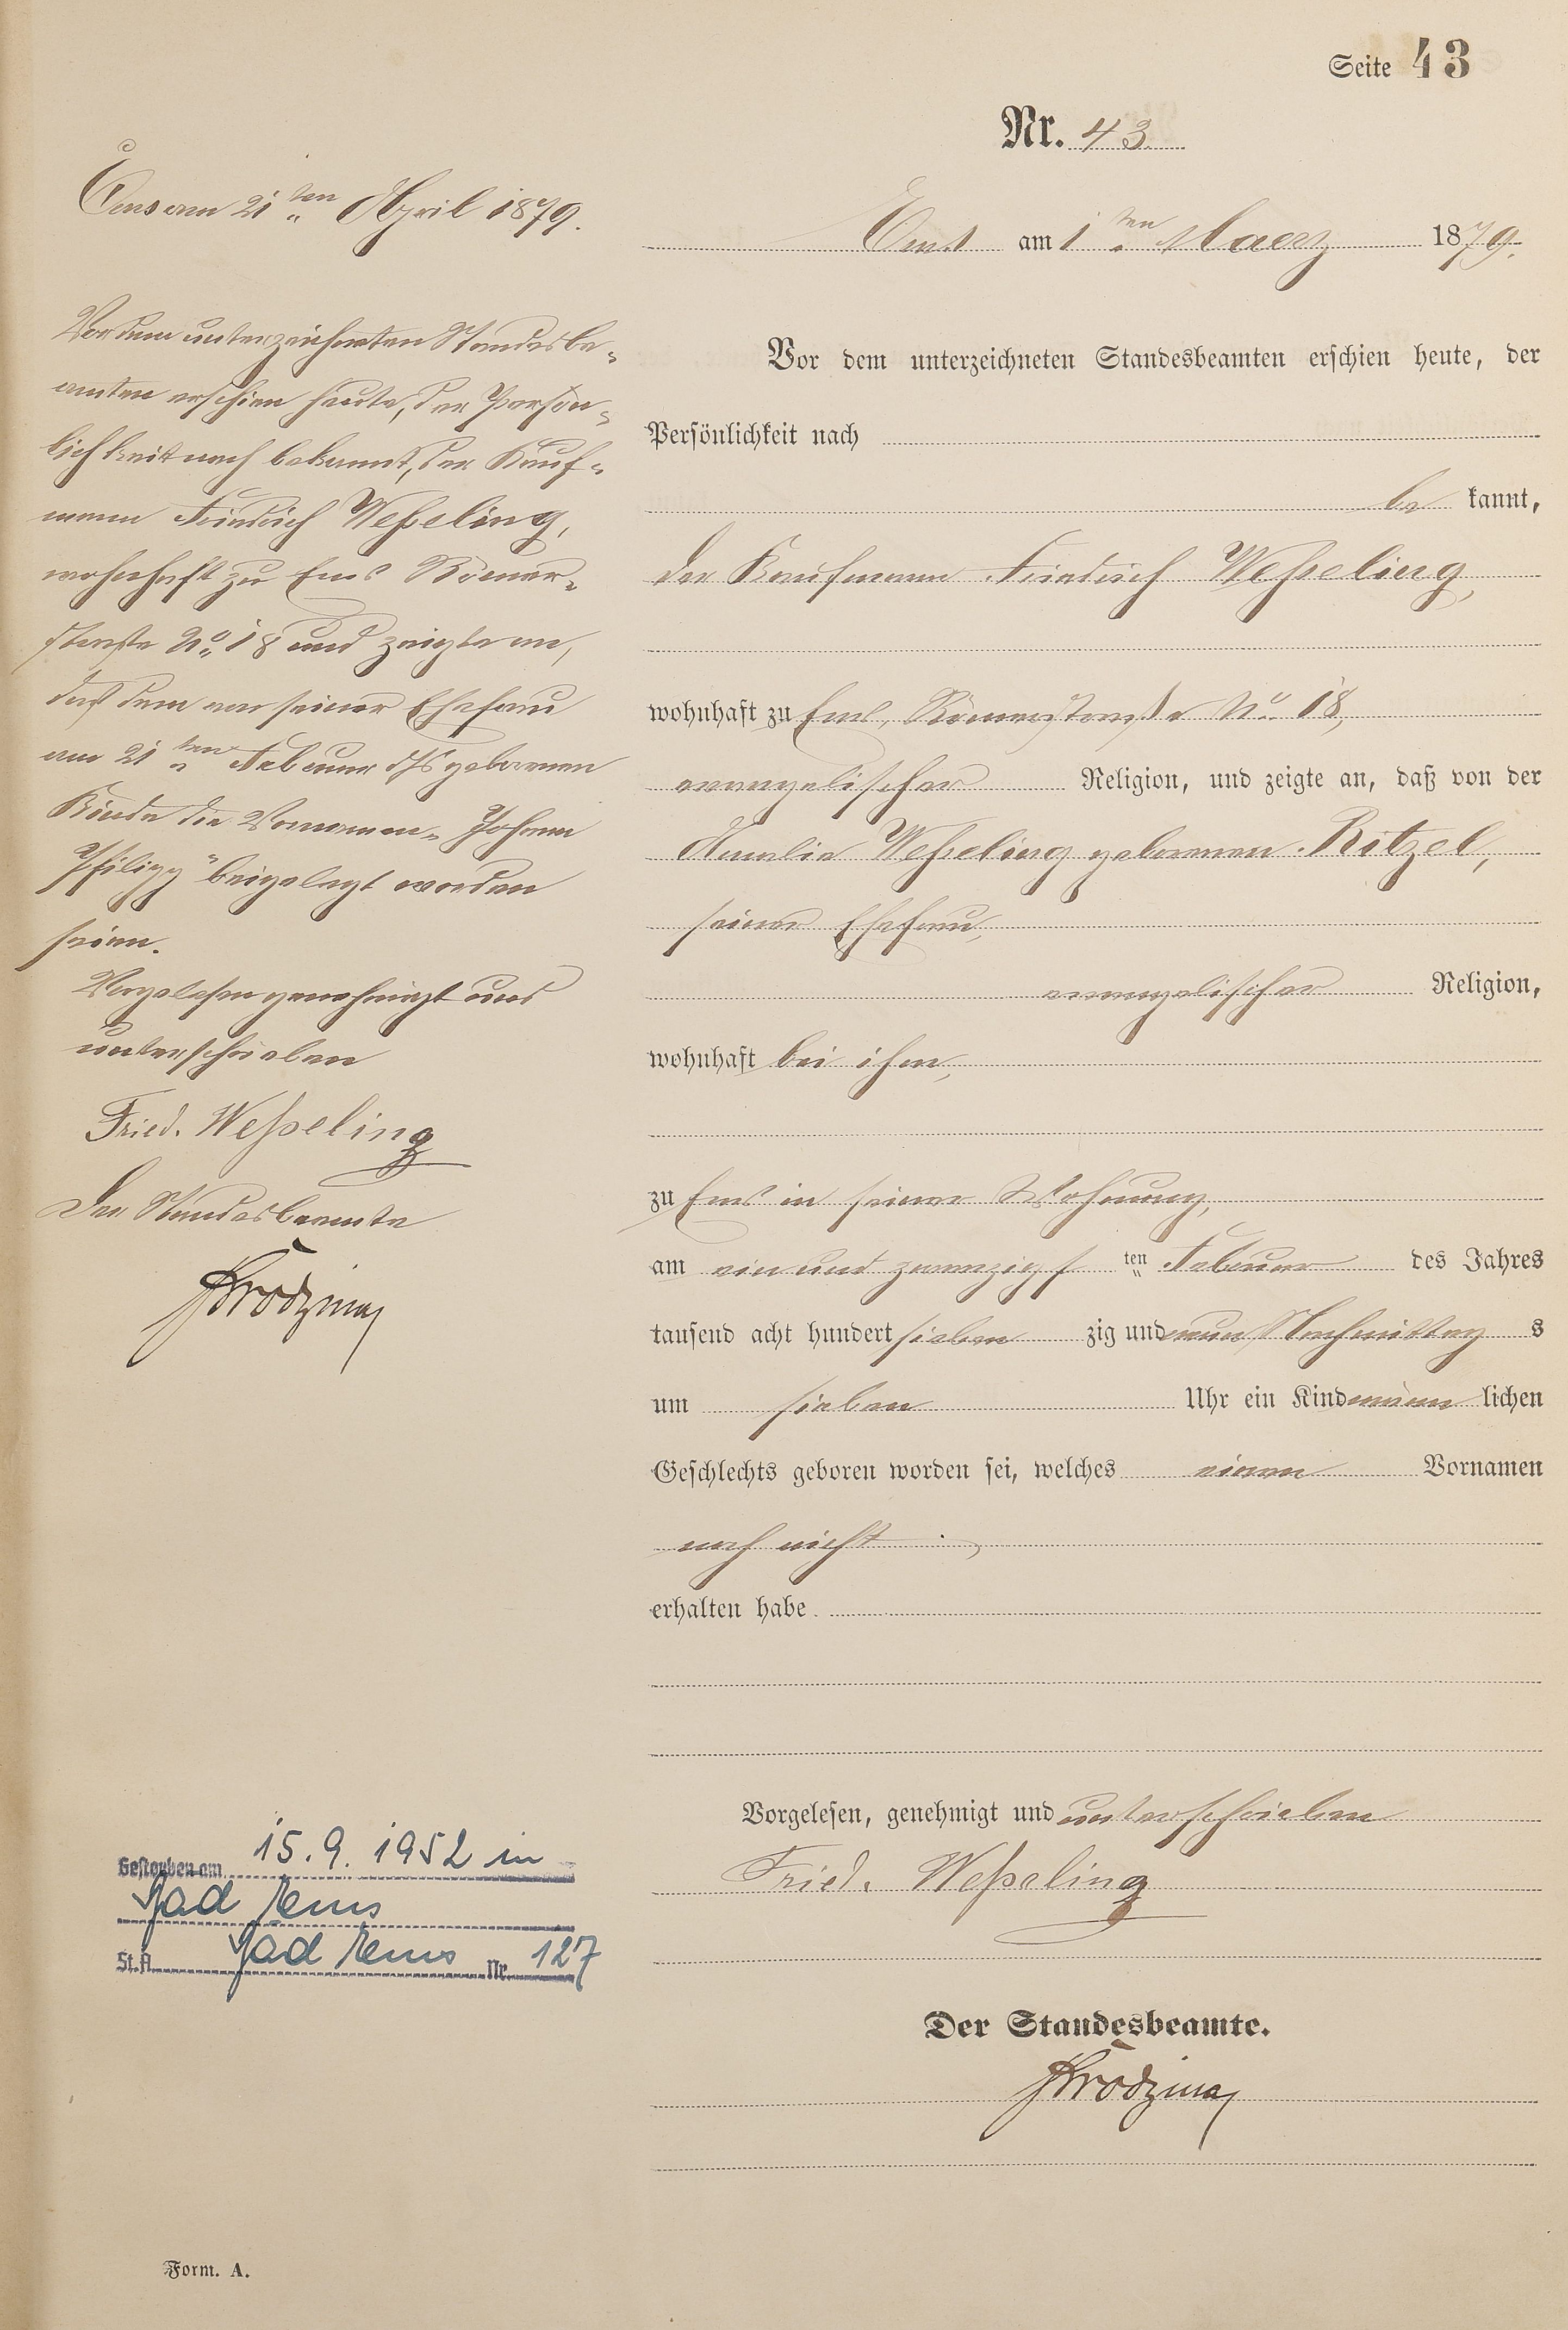 Seite 43
Nr. 43.
Ems am 1ten Maerz 1879.
Vor dem unterzeichneten Standesbeamten erschien heute, der
Persönlichkeit nach
be kannt,
der Kaufmann Friedrich Weßeling,
wohnhaft zu Ems, Römerstraße No. 18,
evangelischer Religion, und zeigte an, daß von der
Amalie Weßeling geborenen Ritzel,
seiner Ehefrau,
evangelischer Religion,
wohnhaft bei ihm,
zu Ems in seiner Wohnung,
am ein und zwanzigsten Februar des Jahres
tausend acht hundert sieben zig und neun Nachmittag s
um sieben Uhr ein Kind männ lichen
Geschlechts geboren worden sei, welches einen Vornamen
noch nicht
erhalten habe.
Vorgelesen, genehmigt und unterschrieben
Fried. Weßeling
Der Standesbeamte.
Ems am 21ten April 1879.
Vor dem unterzeichneten Standesbe-
amten erschien heute, der Persön-
lichkeit nach bekannt, der Kauf-
mann Friedrich Weßeling,
wohnhaft zu Ems Römer-
straße No. 18 und zeigte an,
daß dem von seiner Ehefrau
am 21ten Februar ds Js geborenen
Kinde die Vornamen „Johann
Philipp" beigelegt worden
seien.
Vorgelesen genehmigt und
unterschrieben
Fried. Weßeling
Der Standesbeamte
Gestorben am 15.9.1952 in
Bad Ems
St.A. Bad Ems Nr. 127
Form. A.